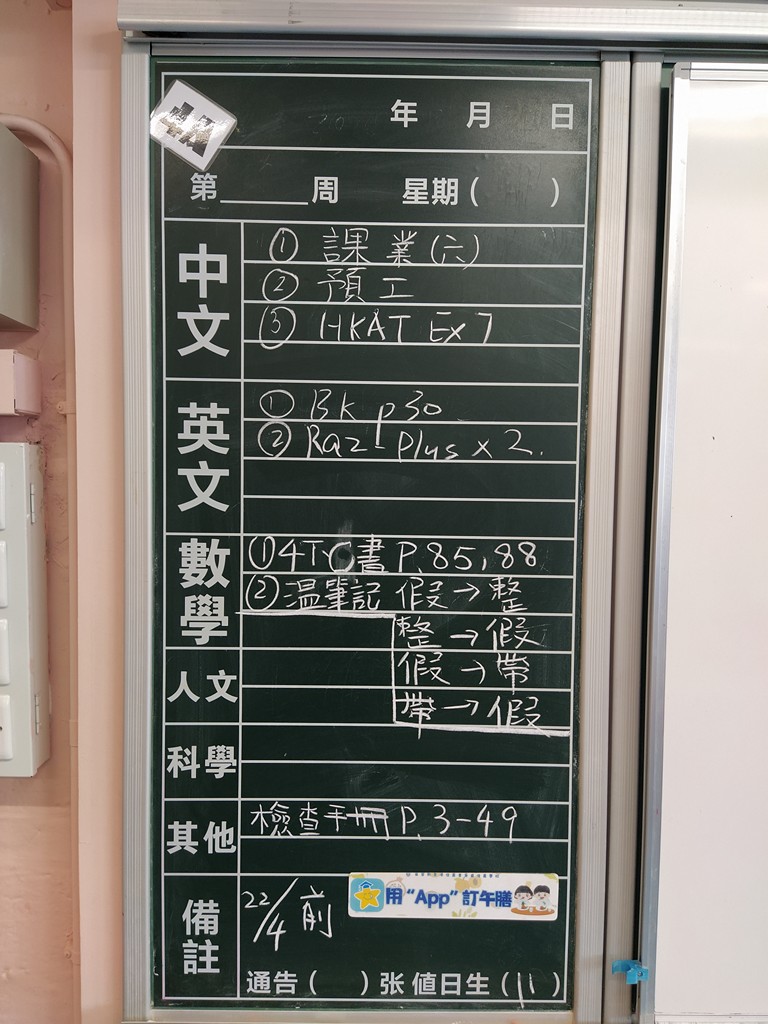 年 月 日
第______周 星期( )
中文
① 課業(六)
② 預工
③ HKAT Ex 7
英文
① Bk p30
② Raz-Plus x 2.
數學
①4T C書 P.85,88
②溫筆記 假→整
整→假
假→帶
帶→假
人文
科學
其他
檢查手冊 P.3-49
備註
22/4 前
用“App”訂午膳
通告( )张 值日生(11)